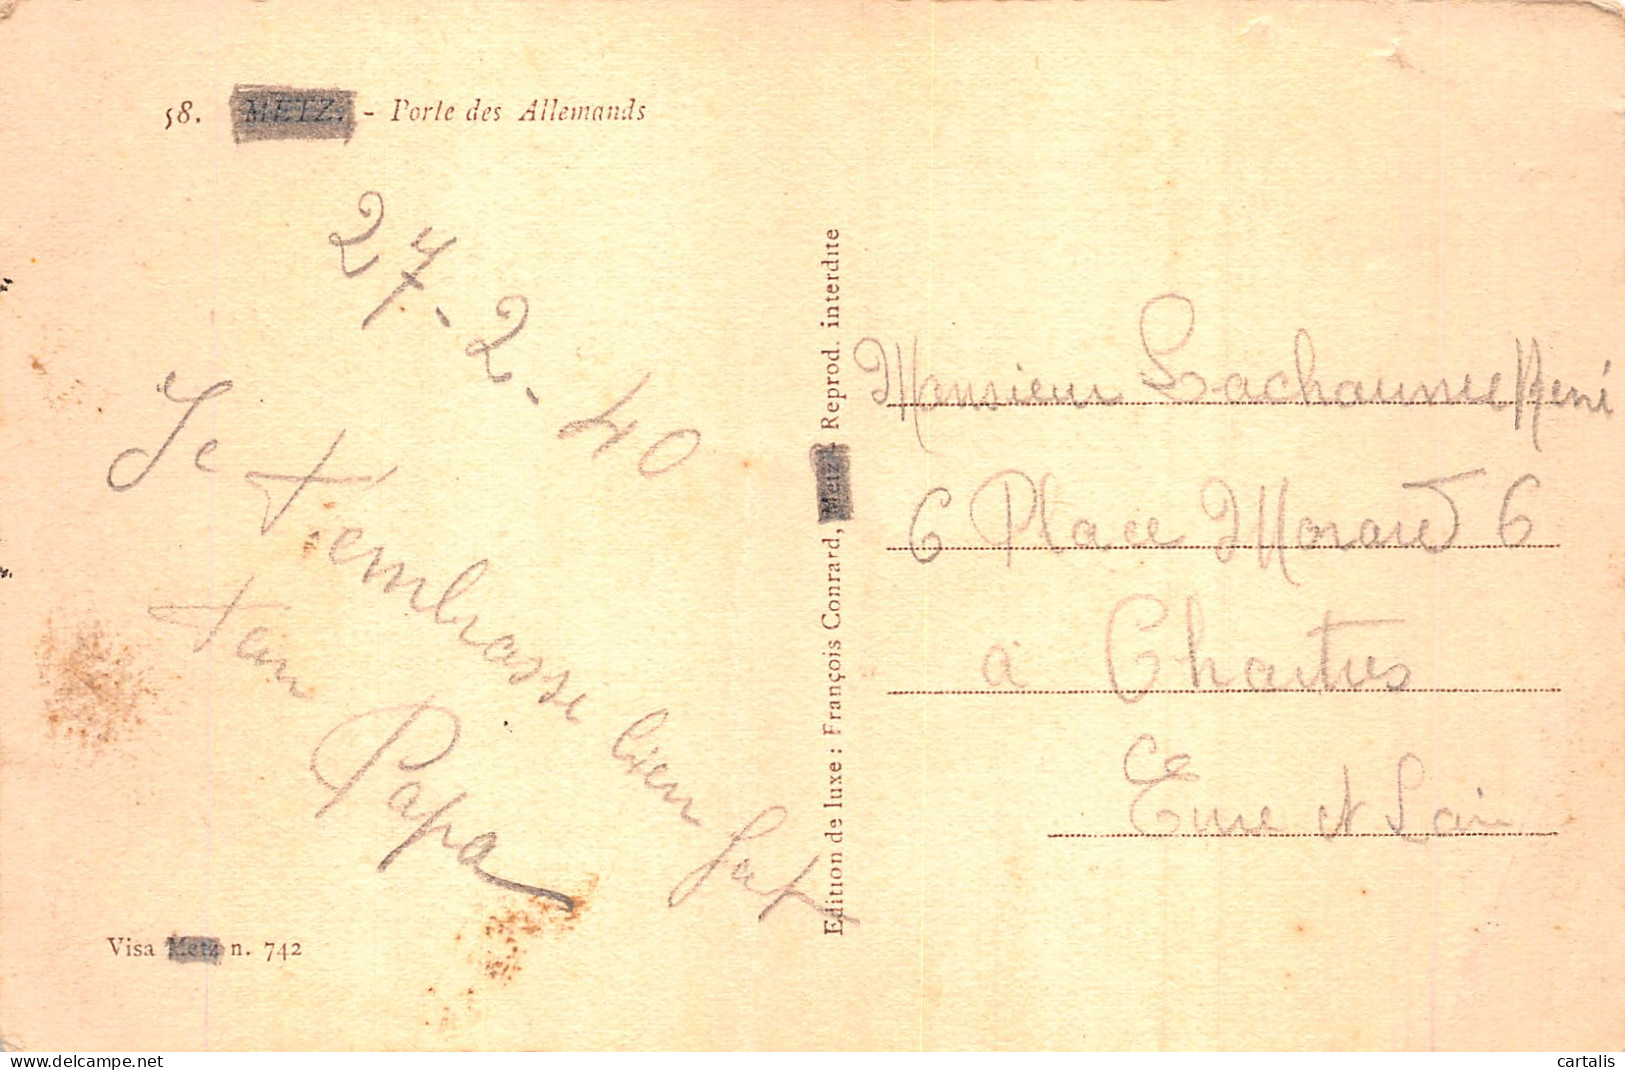 58. METZ. - Porte des Allemands
27-2-40
Je t'embrasse bien fort
ton Papa
Visa Metz n. 742
Edition de luxe : François Conrard, Metz. Reprod. interdite
Monsieur Lachaume René
6 Place Morard 6
à Chartres
Eure et Loir
cartalis